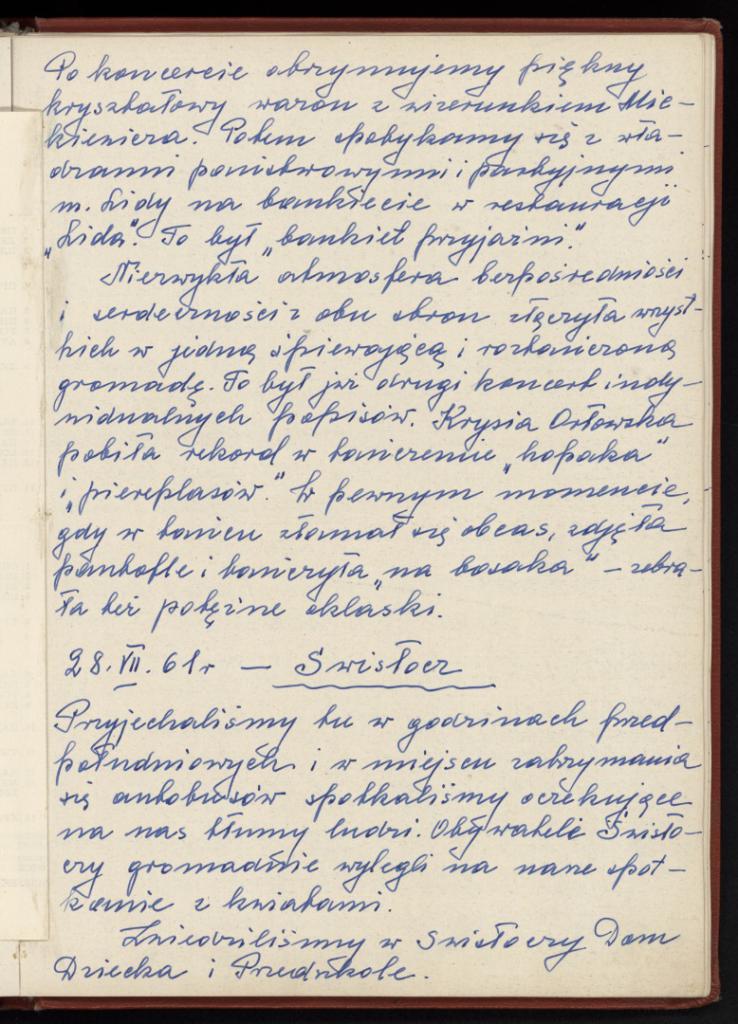 Po koncercie otrzymujemy piękny
kryształowy wazon z wizerunkiem Mic-
kiewicza. Potem spotykamy się z wła-
dzami państwowymi i partyjnymi
m. Lidy na bankiecie w restauracji
„Lida". To był „bankiet przyjaźni."
Niezwykła atmosfera bezpośredniości
i serdeczności z obu stron złączyła wszyst-
kich w jedną śpiewającą i roztańczoną
gromadę. To był już drugi koncert indy-
widualnych popisów. Krysia Orłowska
pobiła rekord w tańczeniu „hopaka"
i „pierepłasów." W pewnym momencie,
gdy w tańcu złamał się obcas, zdjęła
pantofle i tańczyła „na bosaka" – zebra-
ła też potężne oklaski.
28.VII.61r – Swisłocz
Przyjechaliśmy tu w godzinach przed-
południowych i w miejscu zatrzymania
się autobusów spotkaliśmy oczekujące
na nas tłumy ludzi. Obywatele Świsło-
czy gromadnie wylegli na nasze spot-
kanie z kwiatami.
Zwiedziliśmy w Swisłoczy Dom
Dziecka i Przedszkole.